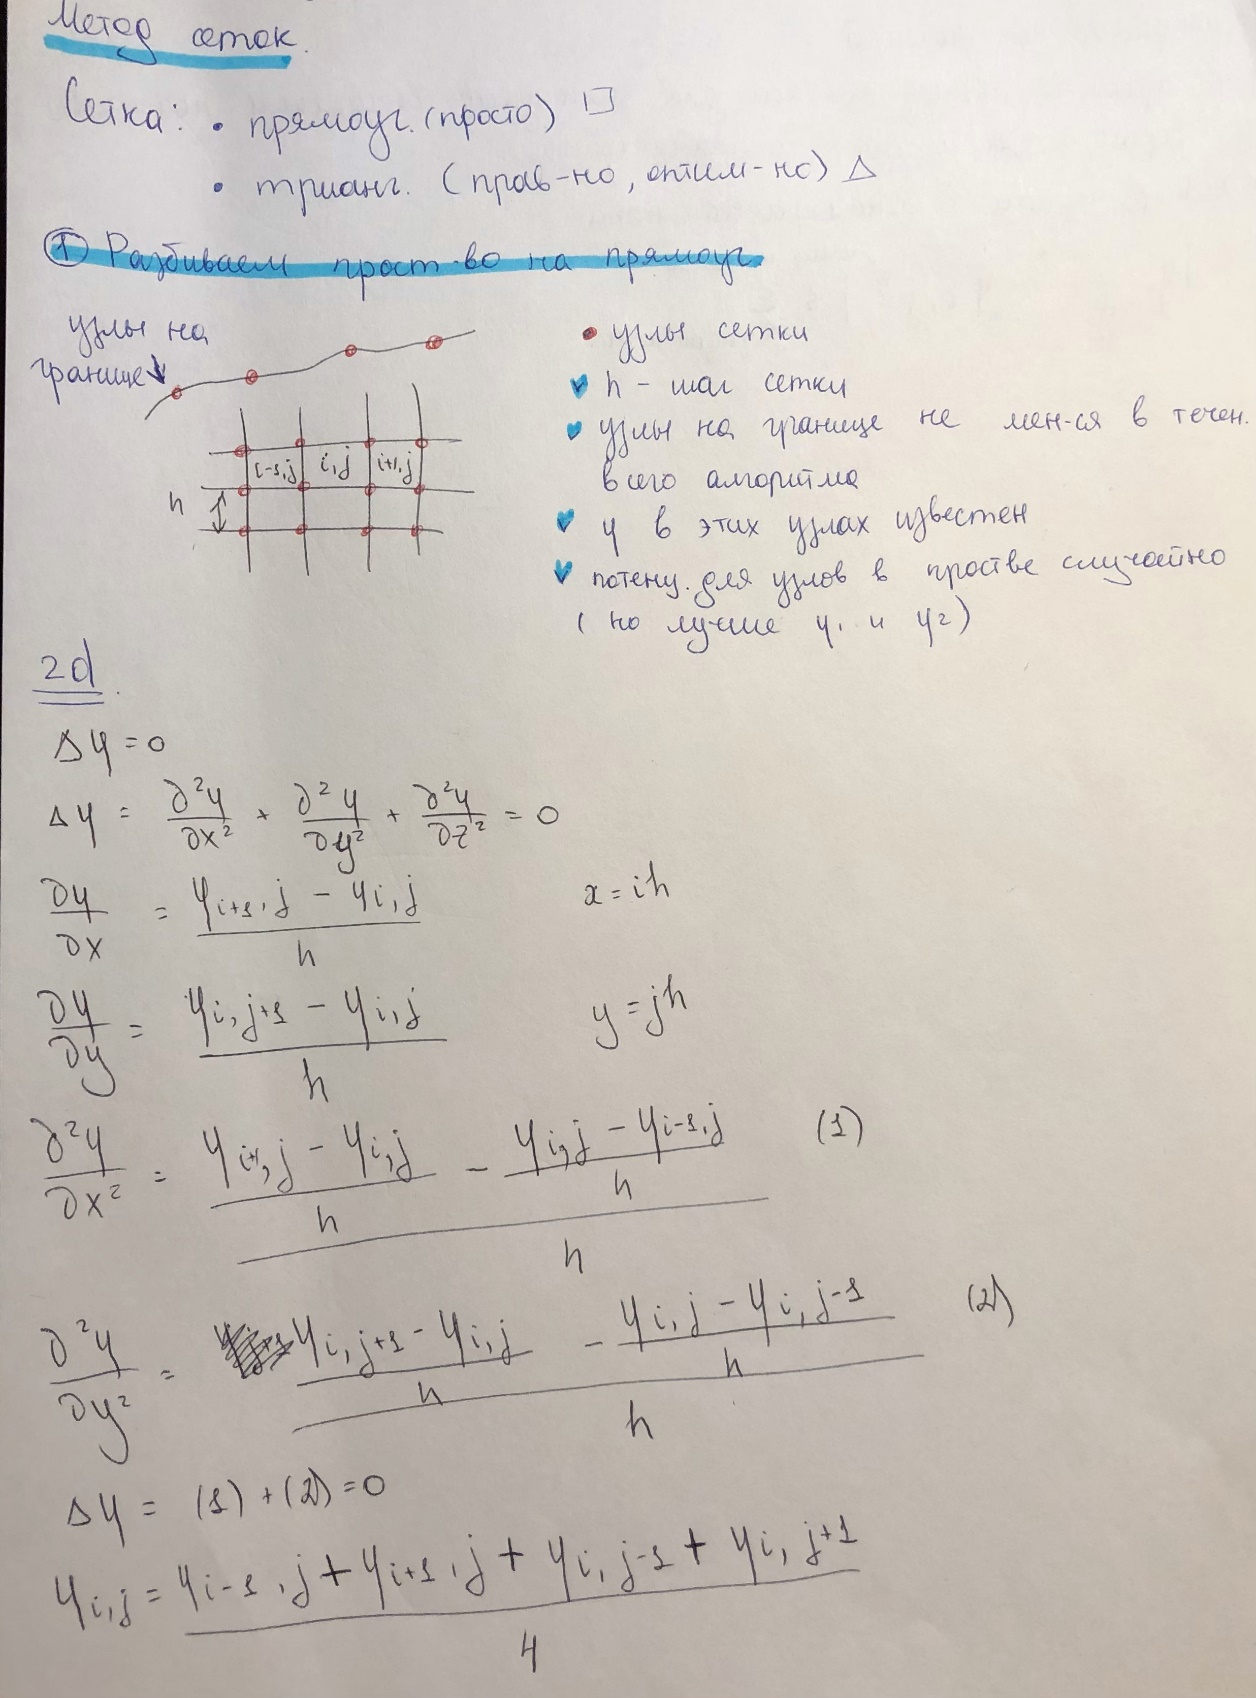 Метод сеток.
Сетка: • прямоуг. (просто) □
• трианг. (прав-но, оптим-но) Δ
① Разбиваем прост-во на прямоуг.
узлы на
границе
• узлы сетки
h - шаг сетки
узлы на границе не мен-ся в течен.
всего алгоритма
φ в этих узлах известен
потенц. для узлов в простве случайно
(но лучше φ₁ и φ₂)
i-1,j i,j i+1,j
h
2d.
Δφ = 0
Δφ = ∂²φ/∂x² + ∂²φ/∂y² + ∂²φ/∂z² = 0
∂φ/∂x = (φi+1,j - φi,j)/h x = ih
∂φ/∂y = (φi,j+1 - φi,j)/h y = jh
∂²φ/∂x² = ((φi+1,j - φi,j)/h - (φi,j - φi-1,j)/h)/h (1)
∂²φ/∂y² = ((φi,j+1 - φi,j)/h - (φi,j - φi,j-1)/h)/h (2)
Δφ = (1) + (2) = 0
φi,j = (φi-1,j + φi+1,j + φi,j-1 + φi,j+1)/4